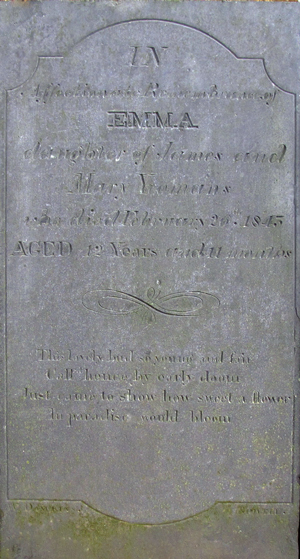 IN
Affectionate Remembrance of
EMMA
daughter of James and
Mary Yeomans
who died February 26th 1845
AGED 12 Years and 11 months
This lovely bud so young and fair
Call'd home by early doom
Just came to show how sweet a flower
In paradise would bloom